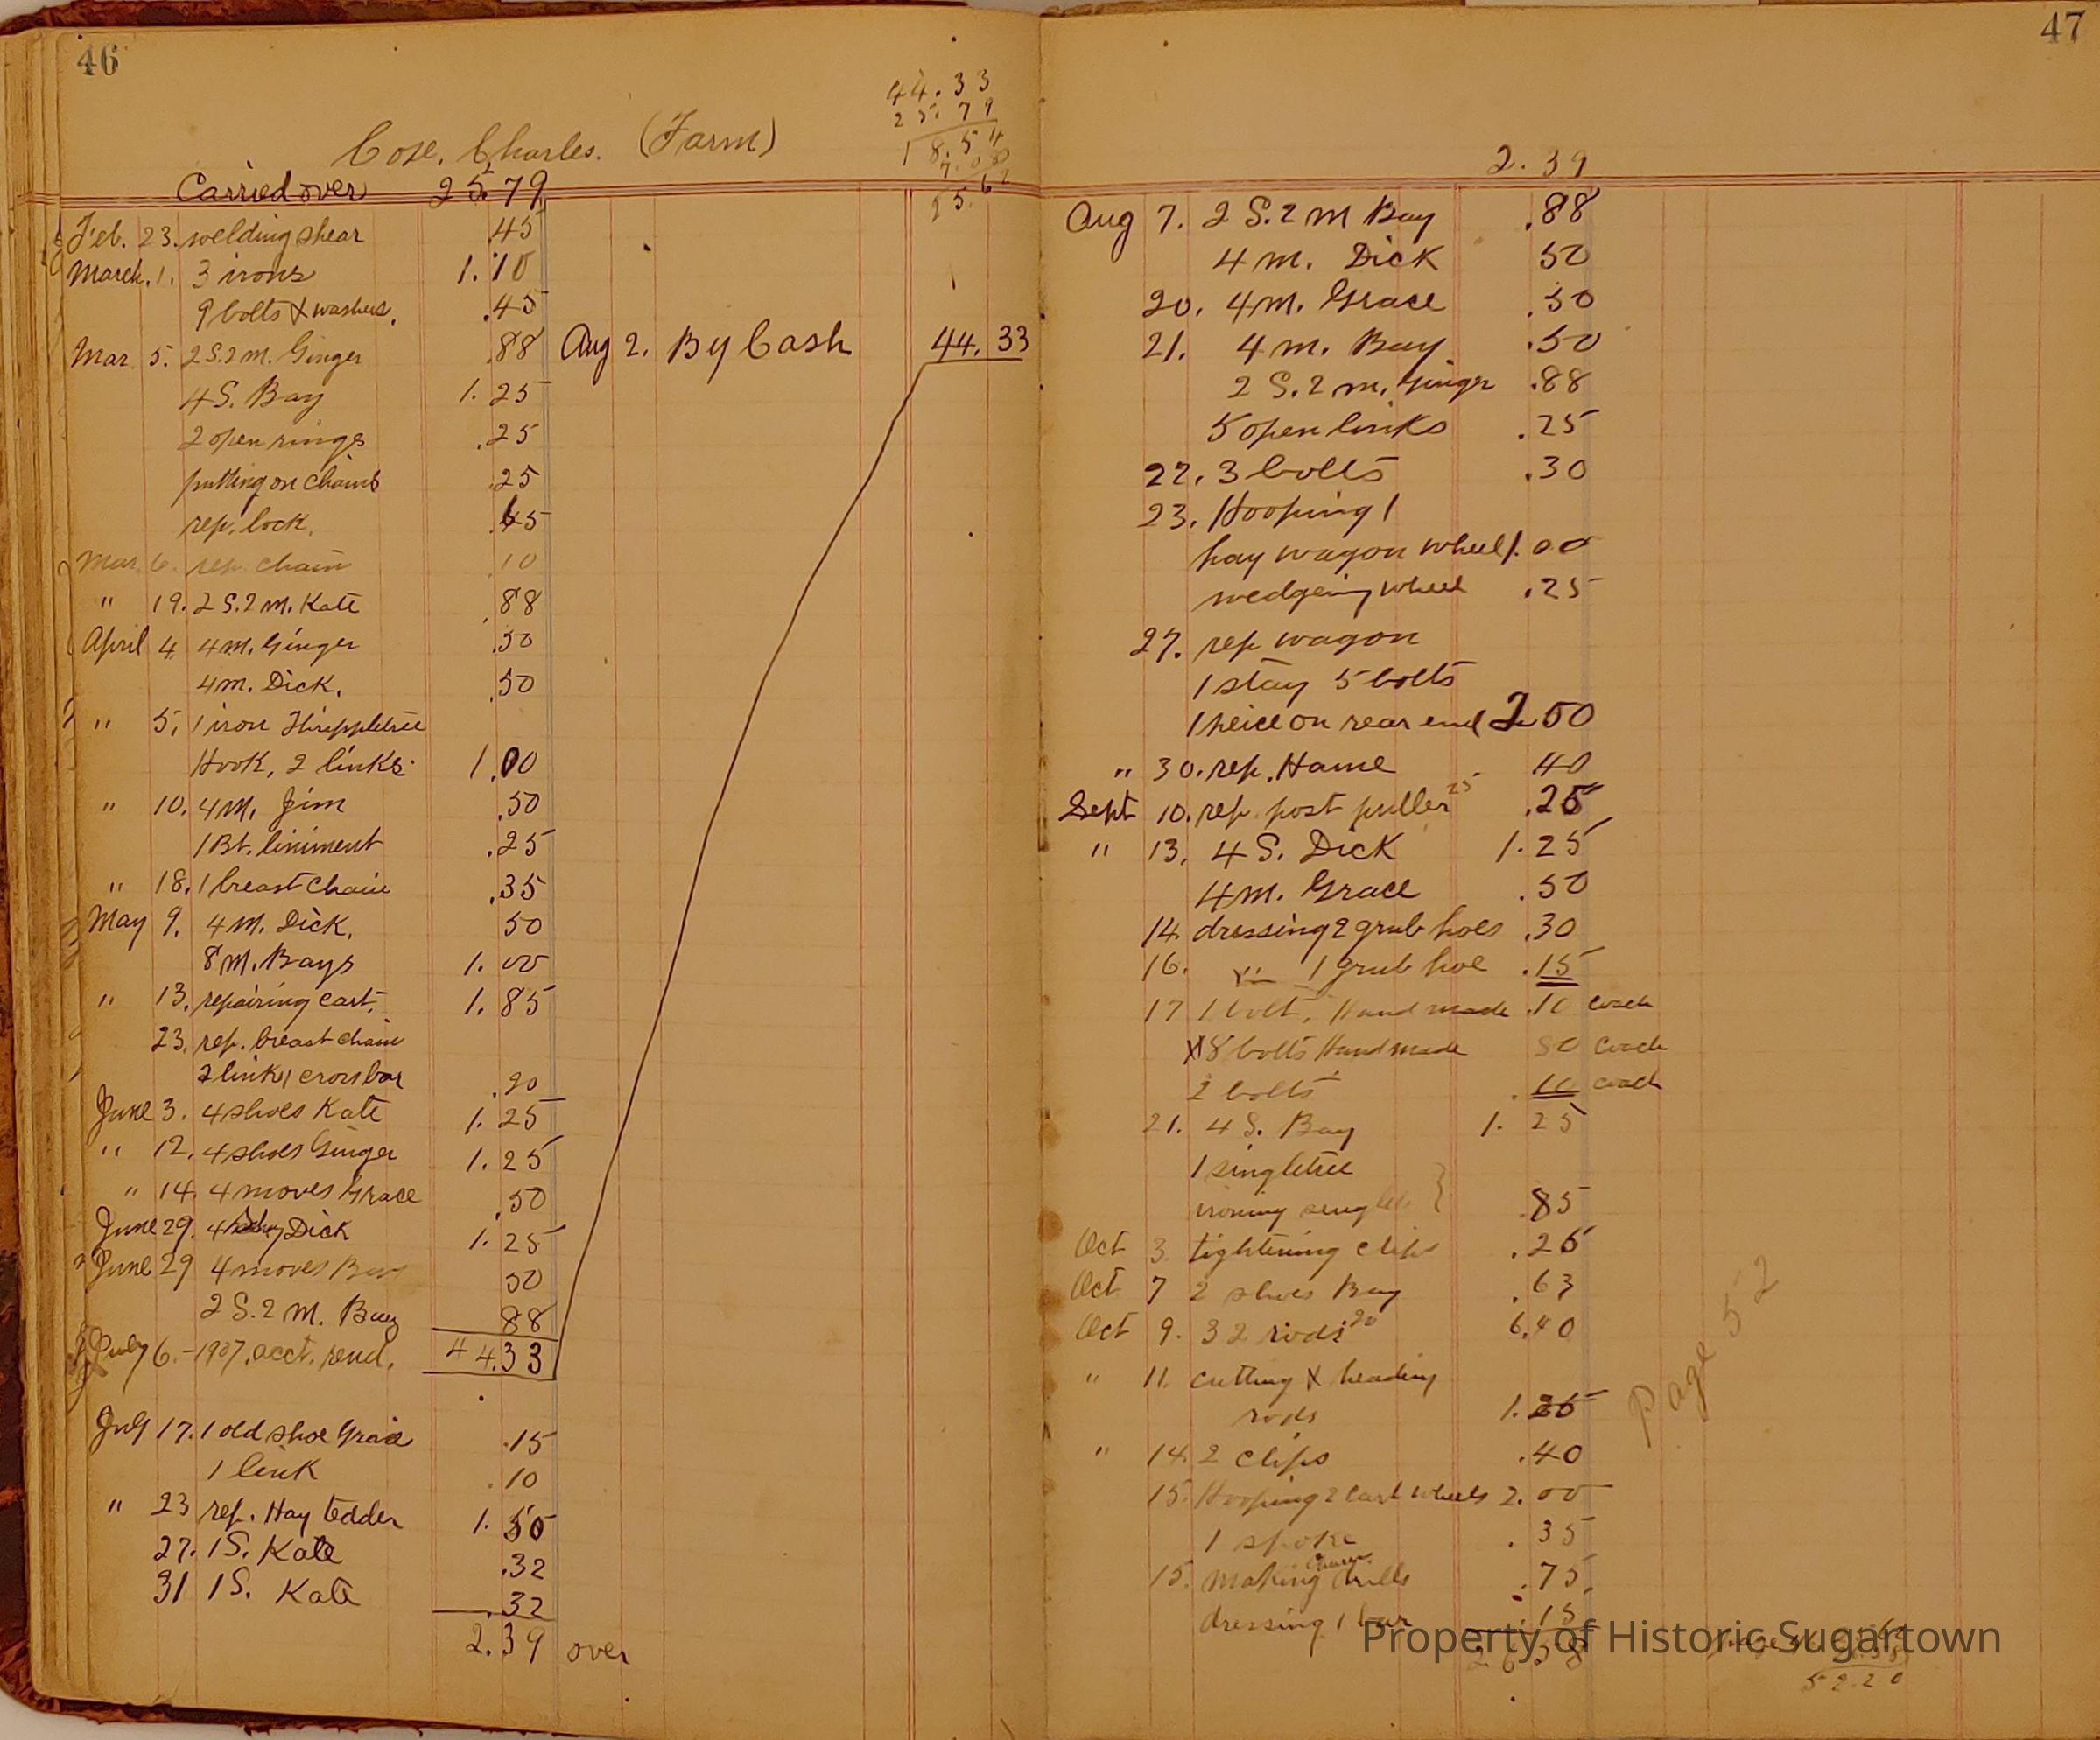 46
44.33
25.79
18.54
Cose, Charles. (Farm)
Carried over 25.79
Feb. 23. welding shear .45
March. 1. 3 irons 1.10
9 bolts & washers. .45
Mar 5. 2 S. 2 m. Ginger .88
Aug 2. By Cash 44.33
4 S. Bay 1.25
2 open rings .25
putting on chains .25
rep. lock.
Mar. 6. rep. chain 10
" 19. 2 S. 2 m. Kate .88
April 4 4 m. Ginger .50
4 m. Dick. .50
" 5. 1 iron
Hook, 2 links 1.00
" 10. 4 m. Jim .50
1 Bt. liniment .25
" 18. 1 breast chain .35
May 9. 4 M. Dick. 50
8 M. Bays 1.00
" 13. repairing cart. 1.85
23. rep. breast chain
2 link 1 cross bar .20
June 3. 4 shoes Kate 1.25
" 12. 4 shoes Ginger 1.25
" 14. 4 moves Grace .50
June 29. 4 Dick 1.25
June 29 4 moves Bay 50
2 S. 2 M. Bay 88
July 6.-1907. acct. rend. 44.33
July 17. 1 old shoe Grace .15
1 link .10
" 23 rep. Hay tedder 1.50
27. 1 S. Kate .32
31 1 S. Kate .32
2.39 over
47
2.39
Aug 7. 2 S. 2 M Bay .88
4 m. Dick 50
20. 4 m. Grace .50
21. 4 m. Bay .50
2 S. 2 m. Ginger .88
5 open links .25
22. 3 bolts .30
23. Hooping 1
hay wagon wheel 1.00
wedgeing wheel .25
27. rep wagon
1 stay 5 bolts
1 peice on rear end 2 50
" 30. rep. Hame 40
Sept 10. rep. post puller 25 .25
" 13. 4 S. Dick 1.25
4 M. Grace .50
14. dressing 2 grub hoes .30
16. " 1 grub hoe .15
17 1 bolt, Hand made .10 each
8 bolts Handmade 80 each
2 bolts .10 each
21. 4 S. Bay 1.25
1 singletree
ironing single } .85
Oct 3. tightening clips .25
Oct 7 2 shoes Bay .63
Oct 9. 32 rods 20 6.40
" 11. cutting & heading
rods
" 14. 2 clips .40
15. Hooping 2 cart wheels 2.00
1 spoke .35
15. making drills .75
dressing 1 bar .15
Page 52
52.20
Property of Historic Sugartown